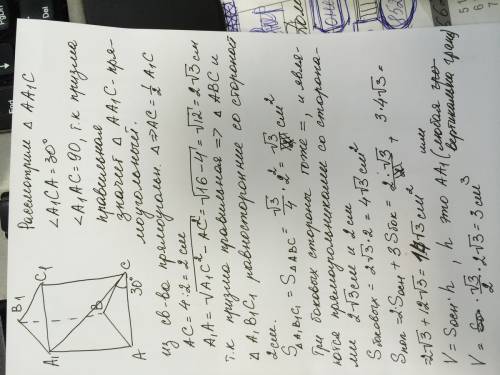 B1
C1
A1
B
C
30°
A
Рассмотрим △ AA₁C
∠A₁CA = 30°
∠A₁AC = 90, т.к призма
правильная
значит △ AA₁C - пря-
моугольный.
из св-ва прямоугол. △ => AC = ½ A₁C
AC = 4:2 = 2 см
A₁A = √A₁C² - AC² = √16-4 = √12 = 2√3 см
т.к призма правильная => △ ABC и
△ A₁B₁C₁ равносторонние со стороной
2см.
S△A₁B₁C₁ = S△ABC = √3/4 · 2² = √3 см²
Три боковых стороны тоже =, и явля-
ются прямоугольниками со сторона-
ми 2√3 см и 2 см
Sбоковых = 2√3 · 2 = 4√3 см²
Sпол = 2Sосн + 3Sбок = 2·√3 + 3·4√3 =
= 2√3 + 12√3 = 14√3 см²
V = Sосн · h, h это AA₁ (или любая дру-
вертикальная грань)
V = √3 · 2√3 = 3 см³
2